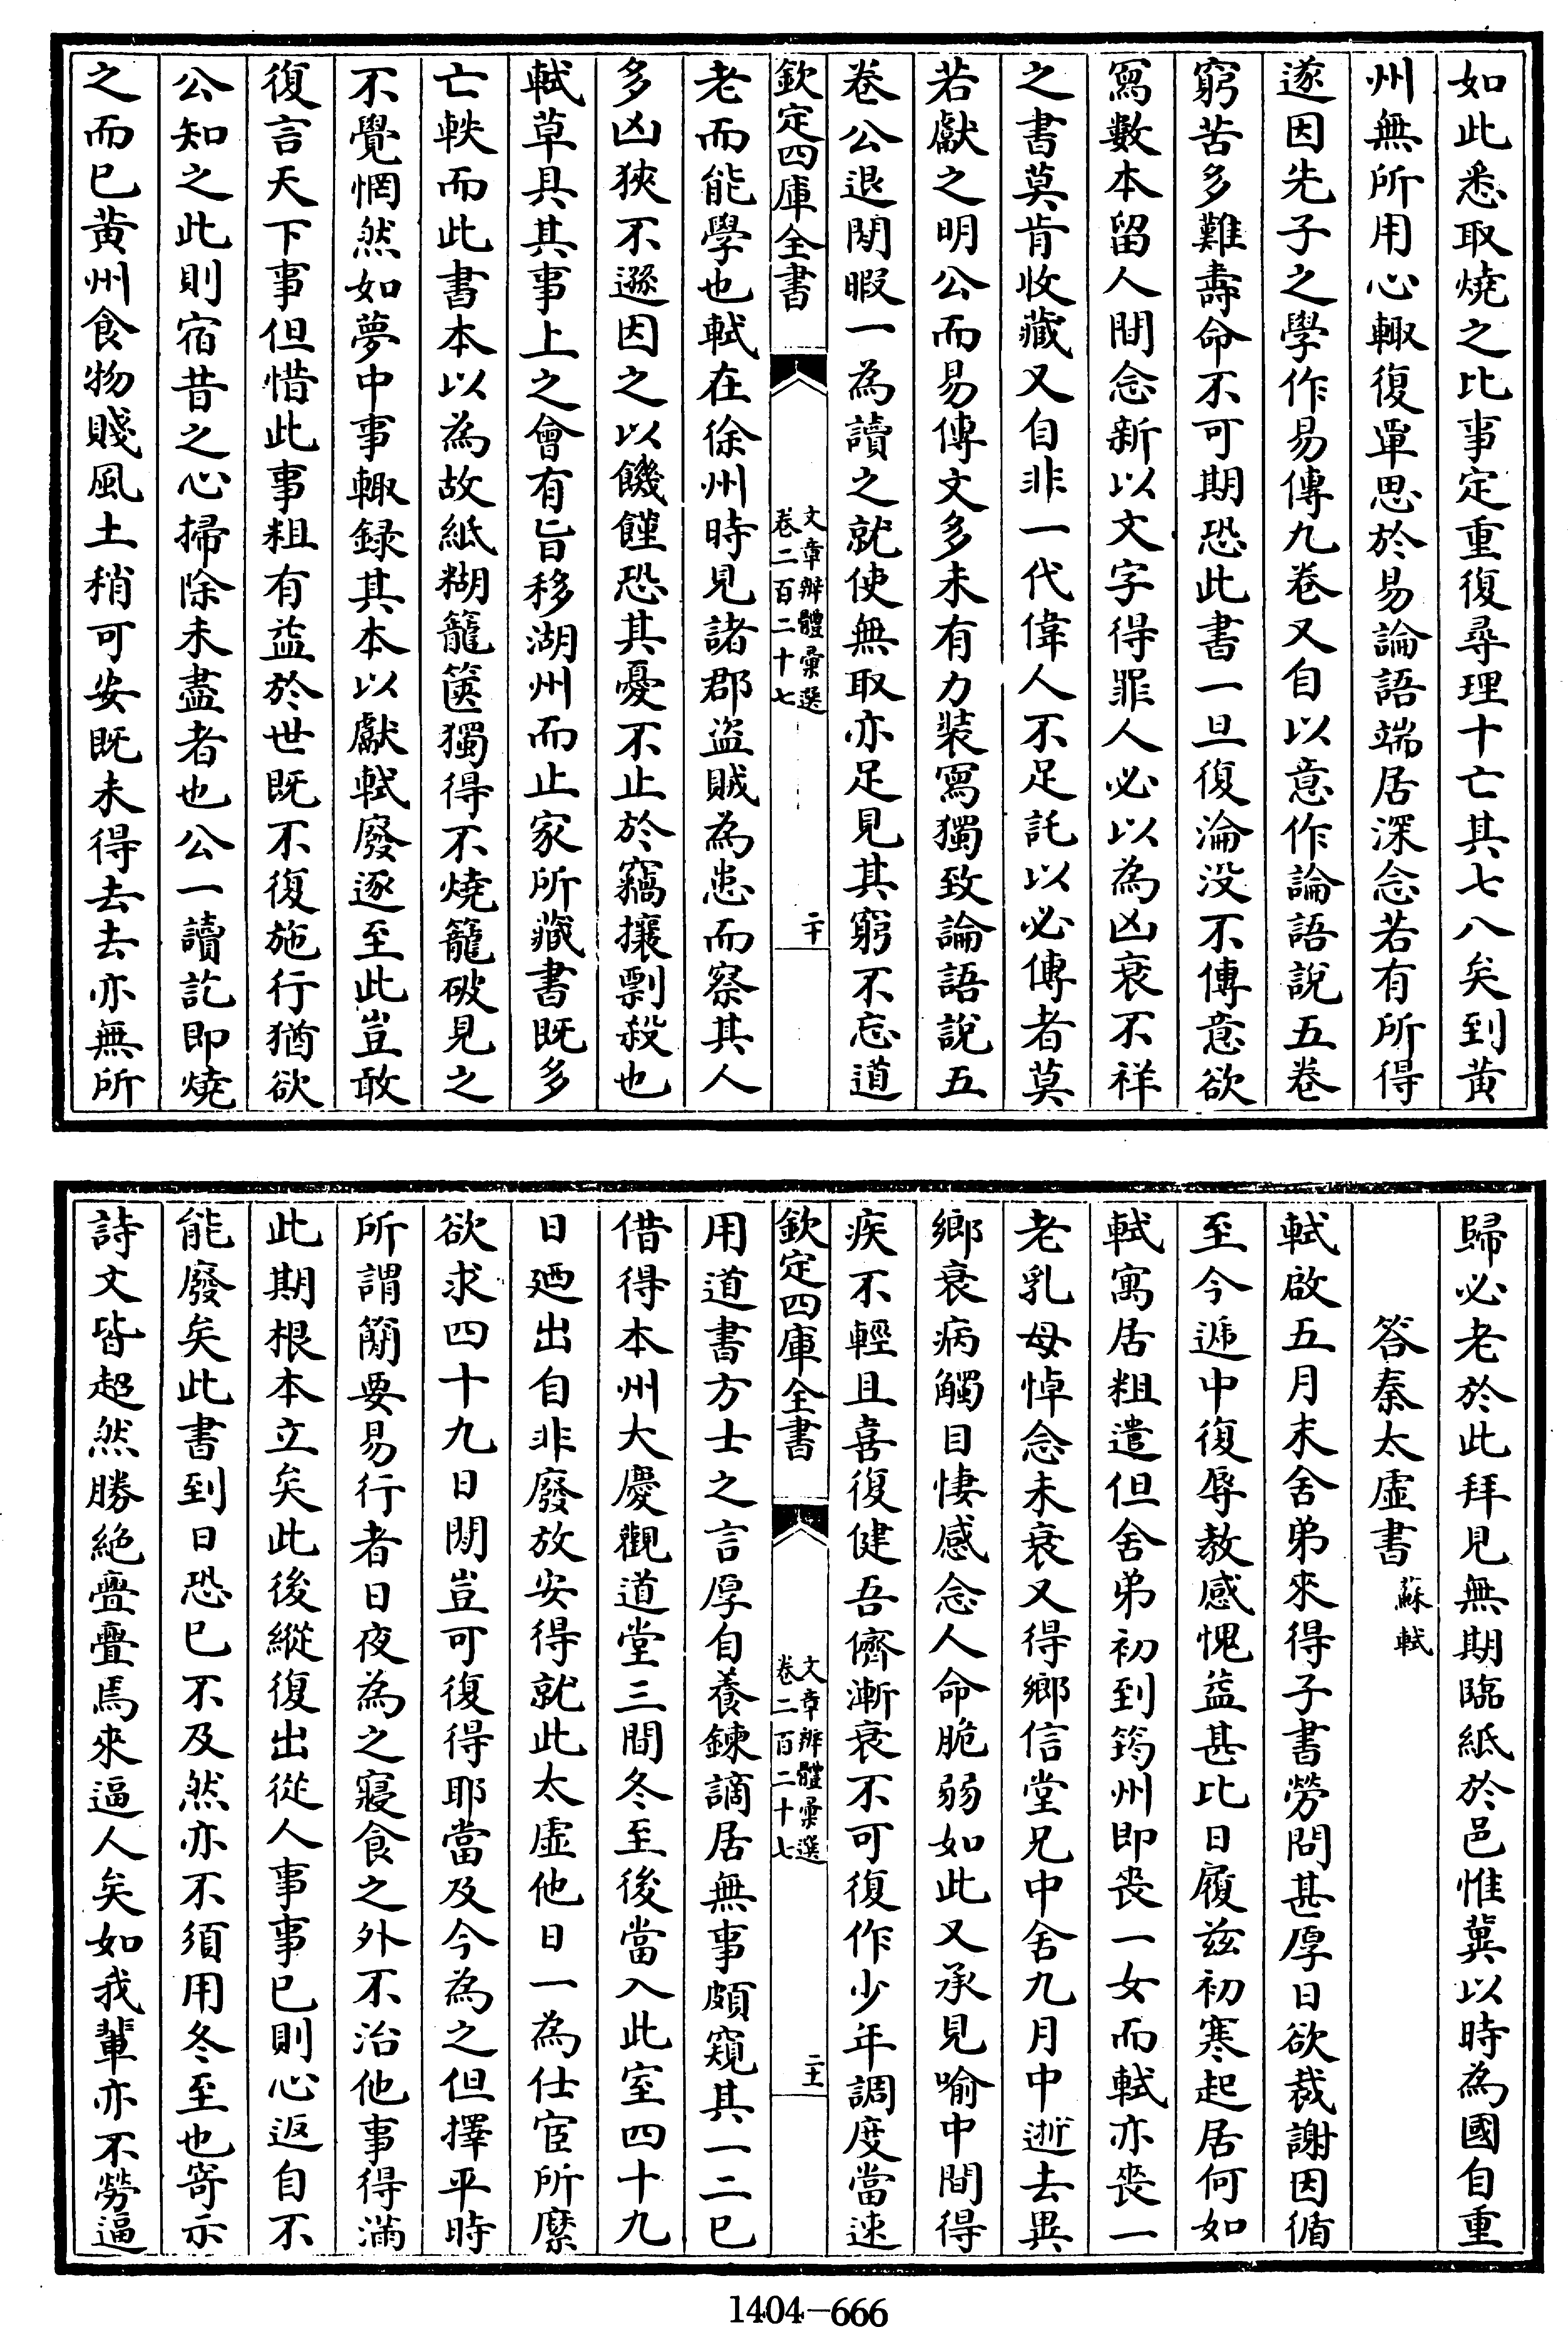 如此悉取燒之比事定重復尋理十亡其七八矣到黄
州無所用心輙復覃思於易論語端居深念若有所得
遂因先子之學作易傳九卷又自以意作論語說五卷
窮苦多難壽命不可期恐此書一旦復淪没不傳意欲
寫數本留人間念新以文字得罪人必以為凶衰不祥
之書莫肯收藏又自非一代偉人不足託以必傳者莫
若獻之明公而易傳文多未有力裝寫獨致論語說五
卷公退閒暇一為讀之就使無取亦足見其窮不忘道
欽定四庫全書
文章辨體彙選
卷二百二十七
二十
老而能學也軾在徐州時見諸郡盜賊為患而察其人
多凶狹不遜因之以饑饉恐其憂不止於竊攘剽殺也
軾草具其事上之會有旨移湖州而止家所藏書既多
亡軼而此書本以為故紙糊籠篋獨得不燒籠破見之
不覺惘然如夢中事輙錄其本以獻軾廢逐至此豈敢
復言天下事但惜此事粗有益於世既不復施行猶欲
公知之此則宿昔之心掃除未盡者也公一讀訖即燒
之而已黄州食物賤風土稍可安既未得去去亦無所
歸必老於此拜見無期臨紙於邑惟冀以時為國自重
答秦太虛書 蘇軾
軾啟五月末舍弟來得子書勞問甚厚日欲裁謝因循
至今遞中復辱教感愧益甚比日履兹初寒起居何如
軾寓居粗遣但舍弟初到筠州即喪一女而軾亦喪一
老乳母悼念未衰又得鄉信堂兄中舍九月中逝去異
鄉衰病觸目悽感念人命脆弱如此又承見喻中間得
疾不輕且喜復健吾儕漸衰不可復作少年調度當速
欽定四庫全書
文章辨體彙選
卷二百二十七
二十一
用道書方士之言厚自養鍊謫居無事頗窺其一二已
借得本州大慶觀道堂三間冬至後當入此室四十九
日廼出自非廢放安得就此太虛他日一為仕宦所縻
欲求四十九日閒豈可復得耶當及今為之但擇平時
所謂簡要易行者日夜為之寢食之外不治他事得滿
此期根本立矣此後縱復出從人事事已則心返自不
能廢矣此書到日恐已不及然亦不須用冬至也寄示
詩文皆超然勝絶亹亹焉來逼人矣如我輩亦不勞逼
1404-666